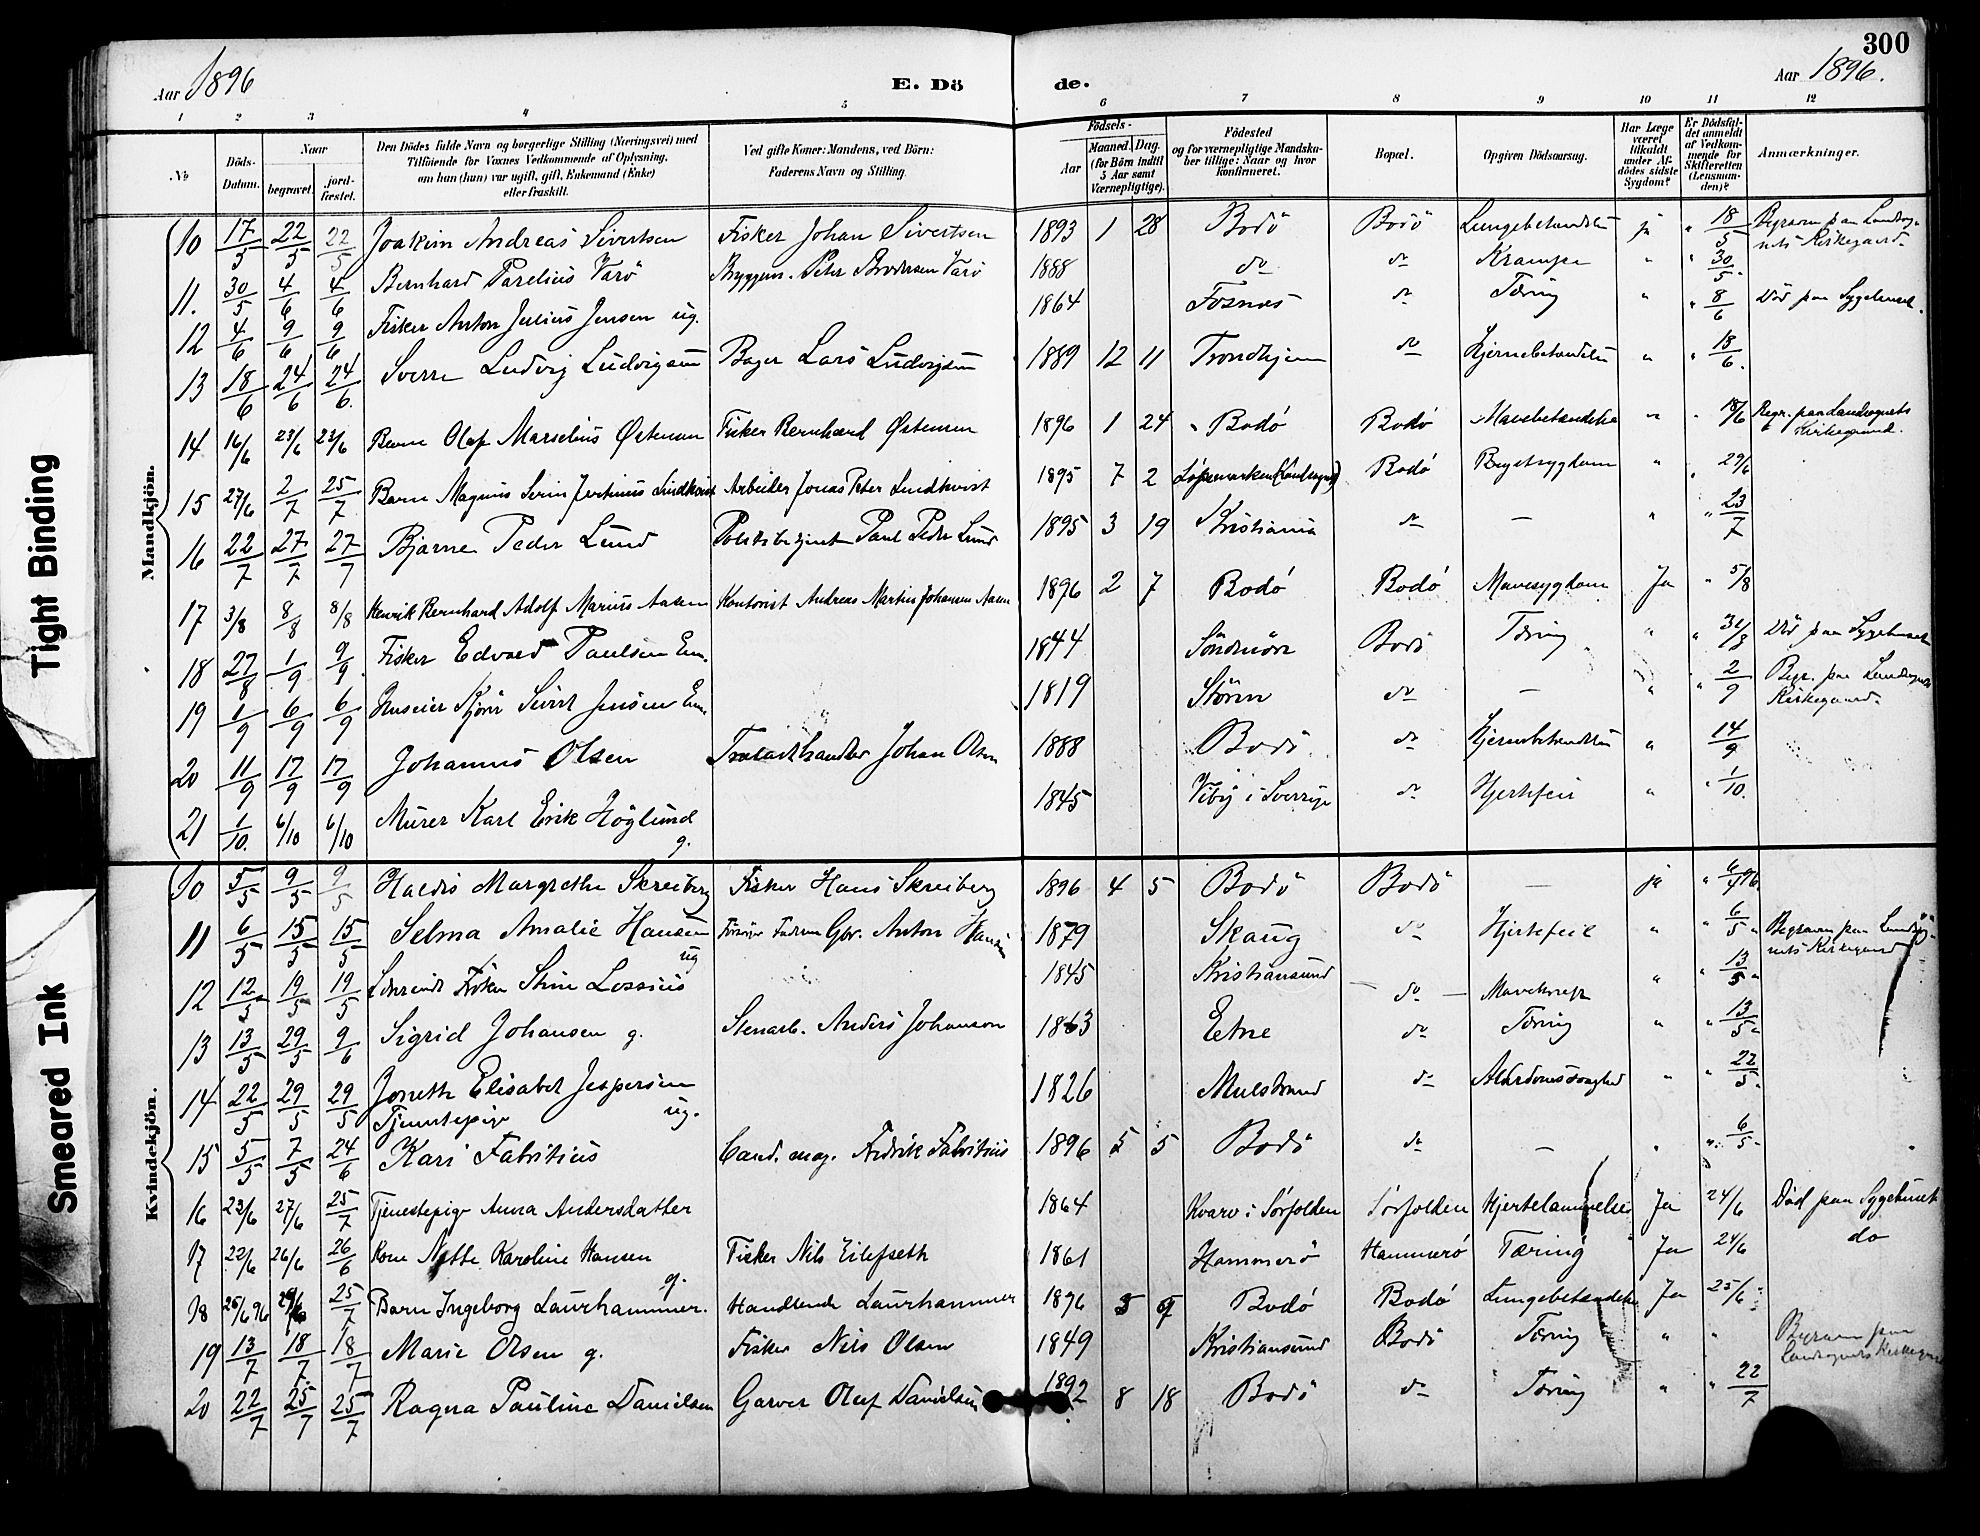 300
Aar 1896
E. Dö
de.
Aar 1896.
1 2 3 4 5 6 7 8 9 10 11 12
№
Döds-Datum.
Naar
begravet.
jord-fæstet.
Den Dödes fulde Navn og borgerlige Stilling (Næringsvei) med
Tilföiende for Voxnes Vedkommende af Oplysning,
om han (hun) var ugift, gift, Enkemand (Enke)
eller fraskilt.
Ved gifte Koner: Mandens, ved Börn:
Faderens Navn og Stilling.
Födsels-
Aar
Maaned. Dag.
(for Börn indtil
5 Aar samt
Værnepligtige).
Födested
og for værnepligtige Mandsku-
ber tillige: Naar og hvor
konfirmeret.
Bopæl.
Opgiven Dödsaarsag.
Har Læge
været
tilkaldt
under Af-
dödes sidste
Sygdom?
Er Dödsfal-
det anmeldt
af Vedkom-
mende for
Skifteretten
(Lensman-
den)?
Anmærkninger.
Mandkjön.
10 17/5 22/5 22/5 Joakim Andreas Sivertsen Fisker Johan Sivertsen 1893 1 28 Bodö Bodö Lungebetændelse ja " 18/5 Begraven paa Landsog-
nets Kirkegaard
11. 30/5 4/6 4/6 Bernhard Parelius Varö Peter Brodersen Varö 1888 do do Krampe " " 30/5.
12 4/6 9/6 9/6 Fisker Anton Julius Jensen ug. 1864 Fosnæs do Tæring " " 8/6 Död paa Sygehuset.
13 18/6 24/6 24/6. Sverre Ludvig Ludvigsen Bager Lars Ludvigsen 1889 12 11 Trondhjem do Hjernebetændelse " " 18/6.
14 16/6 23/6 23/6 Barn Olaf Marselius Østensen Fisker Bernhard Østensen 1896 1 24 Bodó Bodó Mavebetændelse " " 18/6 Begr. paa Landsognets
Kirkegaard.
15 27/6 2/7 25/7 Barn Magnus Lindkvist Arbeider Jonas Peter Lindkvist 1895 7 2 Bodó Brystsygdom " " 29/6
16 22/7 27/7 27/7 Bjarne Peder Lund Politibetjent Paul Peder Lund 1895 3 19 Kristiania do — " " 23/7
17 3/8 8/8 8/8 Henrik Bernhard Adolf Marius Aasen Kontorist Andreas Martin Johansen Aasen 1896 2 7 Bodó Bodó Mavesygdom Ja " 5/8
18 27/8 1/9 9/9. Fisker Edvard Paulsen Em. 1844 Söndmör Bodö Tæring " " 31/8 Död paa Sygehuset
19 1/9 6/9 6/9 Sivert Jensen Em. 1819 Stören do — " " 2/9 Begr. paa Landsognets
Kirkegaard.
20 11/9 17/9 17/9 Johannes Olsen Johan Olsen 1888 Bodö. do Hjernebetændelse " 14/9
21 1/10. 6/10 6/10 Murer Karl Erik Höglund
g.
1845 Viby i Sverrige do Hjertefeil " " 1/10.
Kvindekjön.
10 5/5 9/5 9/5 Haldis Margrethe Skreiberg Fisker Hans Skreiberg 1896 4 5 Bodö Bodö — ja "
11 6/5 15/5 15/5 Selma Amalie Hansen
ug
Anton Hansen 1879 Skaug do Hjertefeil " " 6/5 " Begraven paa Landsog-
nets Kirkegaard
12 12/5 19/5 19/5 Stine Lossius 1845 Kristiansund — do — " " 13/5 "
13 13/5 29/5 9/6 Sigrid Johansen g. Stenarb. Anders Johanson 1863 Eetne do Tæring " " 13/5 "
14 22/5 29/5 29/5 Joneth Elisabet Jespersen
Tjenestepige ug.
1826 do Alderdomssvaghed " " 22/5.
15 5/5 7/5 24/6 Kari Fabritius Cand. mag. Fredrik Fabritius 1896 5 5 Bodö do — " " 6/5
16 23/6 27/6 25/7 Tjenestepige Anna Andersdatter 1864 Kvarv i Sørfolden Sørfolden Hjertelammelse Ja 24/6 Død paa Sygehuset
17 22/6 26/6 26/6 Kone Nette Karoline Hansen
g.
Fisker Nils Eilefseth 1861 Hammerö Hammerö Tæring Ja 24/6 do
18 25/6 96 29/6 25/7 Barn Ingeborg Laurhammer. Handlende Laurhammer 1896 3 9 Bodó Bodó Lungebetændelse Ja 25/6
19 13/7 18/7 18/7 Marie Olsen g. Fisker Nils Olsen 1849 Kristiansund Bodö Tæring " " Begraven paa
Landsognets Kirkegaard
20 22/7 25/7 25/7 Ragna Pauline Danielsen Garver Oluf Danielsen 1892 8 18 Bodö do Tæring " " 22/7
Tight Binding
Smeared Ink